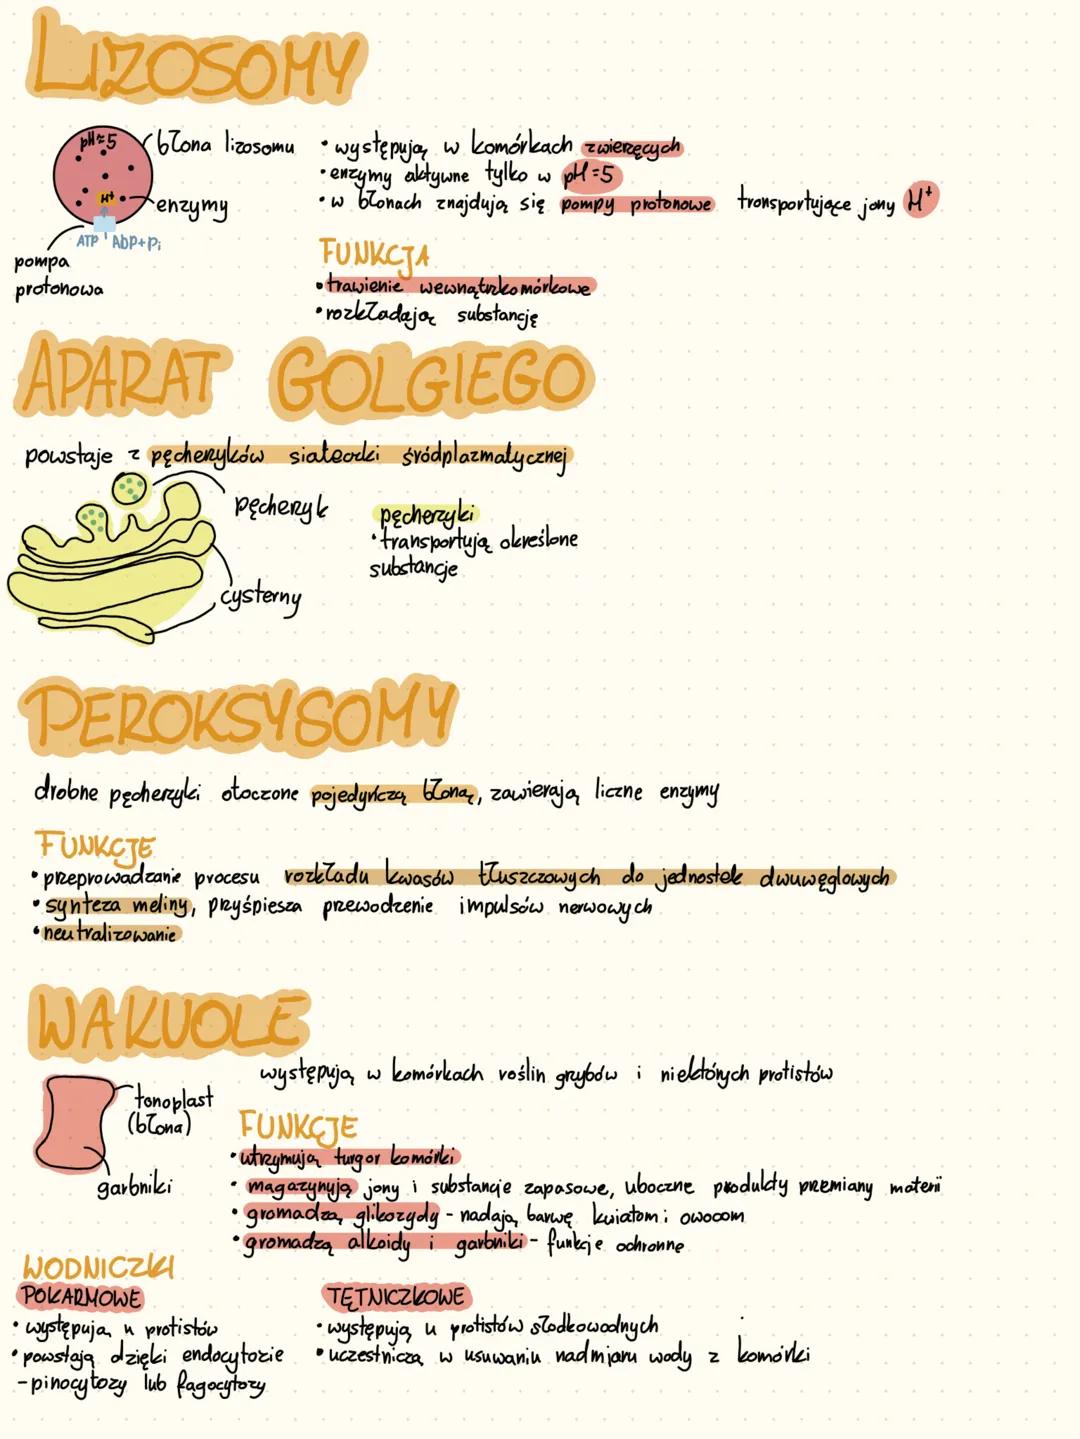 LIZOSOMY
pH≈5
błona lizosomu
H+
enzymy
ATP ADP+Pi
pompa
protonowa
• występują w komórkach zwierzęcych
• enzymy aktywne tylko w pH=5
• w błonach znajdują się pompy protonowe transportujące jony H+
FUNKCJA
• trawienie wewnątrzkomórkowe
• rozkładają substancję
APARAT GOLGIEGO
powstaje z pęcherzyków siateczki śródplazmatycznej
pęcherzyk
cysterny
pęcherzyki
• transportują określone
substancje
PEROKSYSOMY
drobne pęcherzyki otoczone pojedyńczą błoną, zawierają liczne enzymy
FUNKCJE
• przeprowadzanie procesu rozkładu kwasów tłuszczowych do jednostek dwuwęglowych
• synteza meliny, przyśpiesza przewodzenie impulsów nerwowych
• neutralizowanie
WAKUOLE
występują w komórkach roślin grzybów i niektórych protistów
tonoplast
(błona)
garbniki
FUNKCJE
• utrzymują turgor komórki
• magazynują jony i substancje zapasowe, uboczne produkty przemiany materii
• gromadzą glikozydy - nadają barwę kwiatom i owocom
• gromadzą alkoidy i garbniki - funkcje ochronne
WODNICZKI
POKARMOWE
• występują u protistów
• powstają dzięki endocytozie
- pinocytozy lub fagocytozy
TĘTNICZKOWE
• występują u protistów słodkowodnych
• uczestniczą w usuwaniu nadmiaru wody z komórki